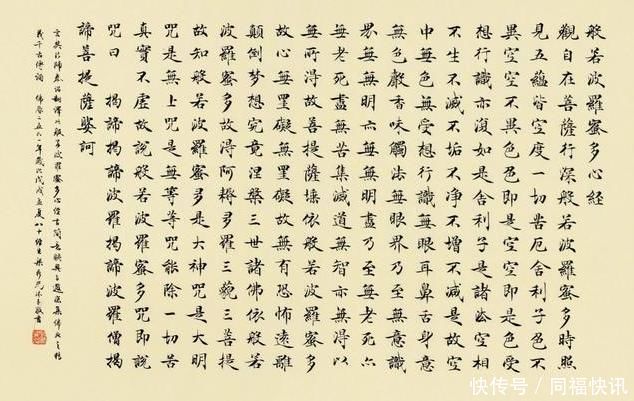 般若波羅蜜多心經
觀自在菩薩行深般若波羅蜜多時照
見五蘊皆空度一切苦厄舍利子色不
異空空不異色色即是空空即是色受
想行識亦復如是舍利子是諸法空相
不生不滅不垢不淨不增不減是故空
中無色無受想行識無眼耳鼻舌身意
無色聲香味觸法無眼界乃至無意識
界無無明亦無無明盡乃至無老死亦
無老死盡無苦集滅道無智亦無得以
無所得故菩提薩埵依般若波羅蜜多
故心無罣礙無罣礙故無有恐怖遠離
顛倒梦想究竟涅槃三世諸佛依般若
波羅蜜多故得阿耨多羅三藐三菩提
故知般若波羅蜜多是大神咒是大明
咒是無上咒是無等等咒能除一切苦
真實不虛故說般若波羅蜜多咒即說
咒曰 揭諦揭諦波羅揭諦波羅僧揭
諦菩提薩婆訶
快传号/同福快讯